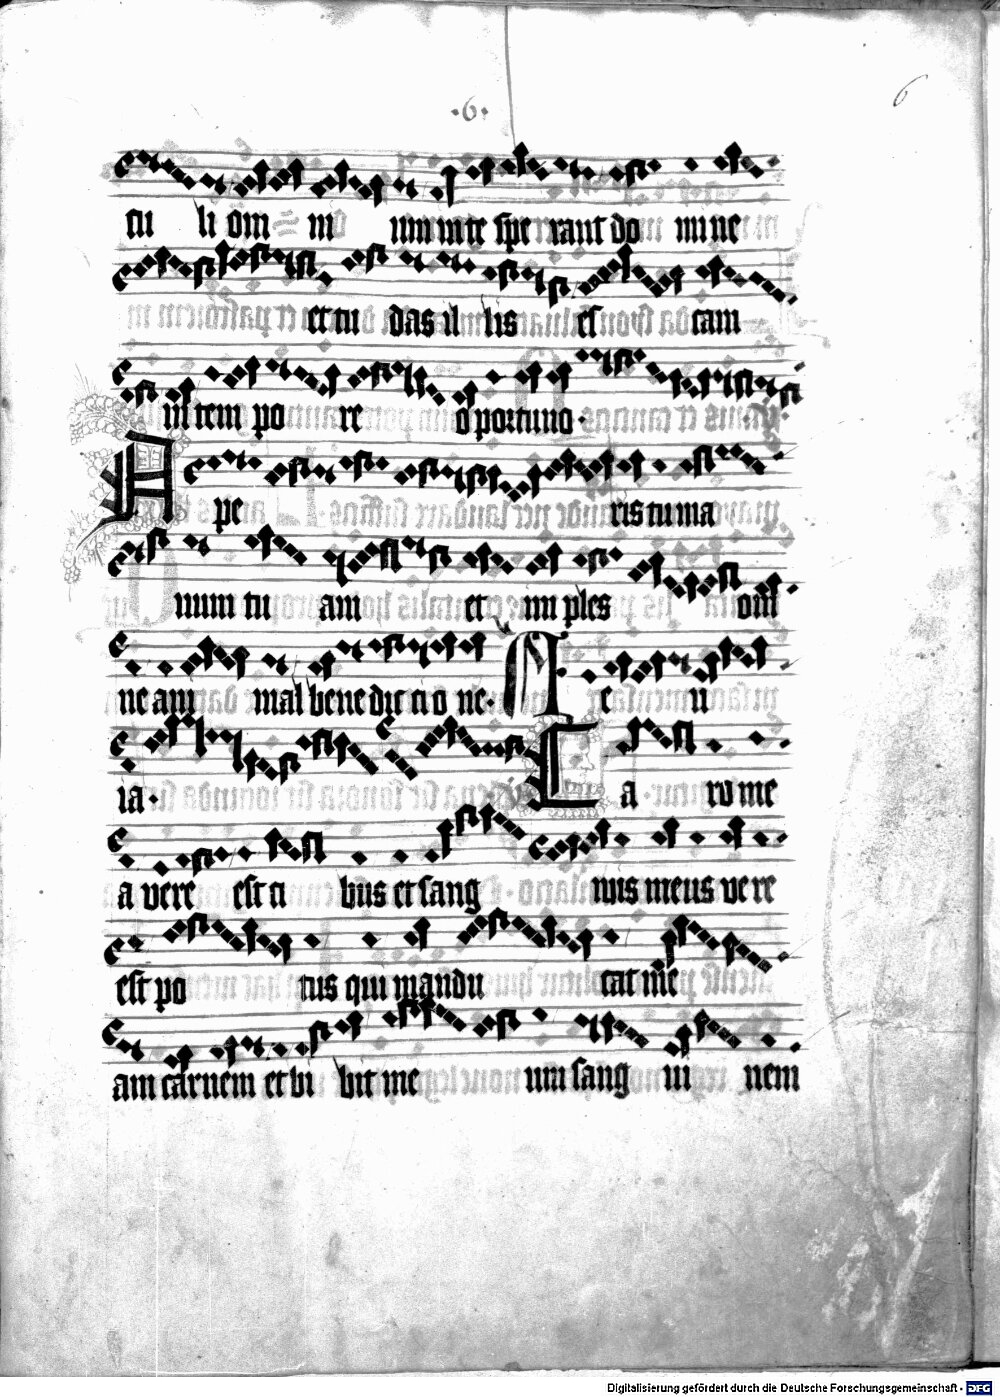 ·6·
6
cu li om ni um in te spe rant do mi ne
et tu das il lis es cam
in tem po re o portuno·
A pe ris tu ma
num tu am et im ples om
ne ani mal bene dic ti o ne· A e u
ia· C a ro me
a vere est ci bus et sang wis meus ve re
est po tus qui mandu cat me
am carnem et bi bit me um sang ui nem
Digitalisierung gefördert durch die Deutsche Forschungsgemeinschaft - DFG